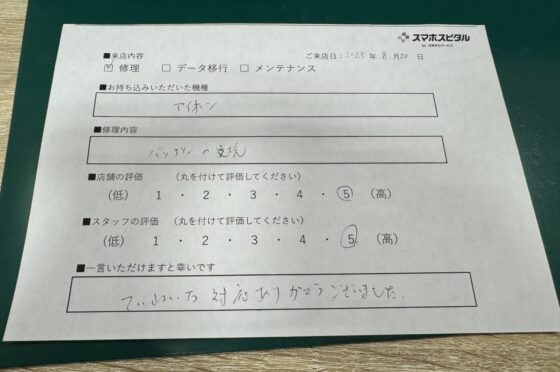 スマホスピタル
■来店内容
ご来店日：2025年8月20日
☑ 修理 □ データ移行 □ メンテナンス
■お持ち込みいただいた機種
アイホン
■修理内容
バッテリーの交換
■店舗の評価 (丸を付けて評価してください)
(低) 1 ・ 2 ・ 3 ・ 4 ・ 5 (高)
■スタッフの評価 (丸を付けて評価してください)
(低) 1 ・ 2 ・ 3 ・ 4 ・ 5 (高)
■一言いただけますと幸いです
ていねいな対応ありがとうございました。